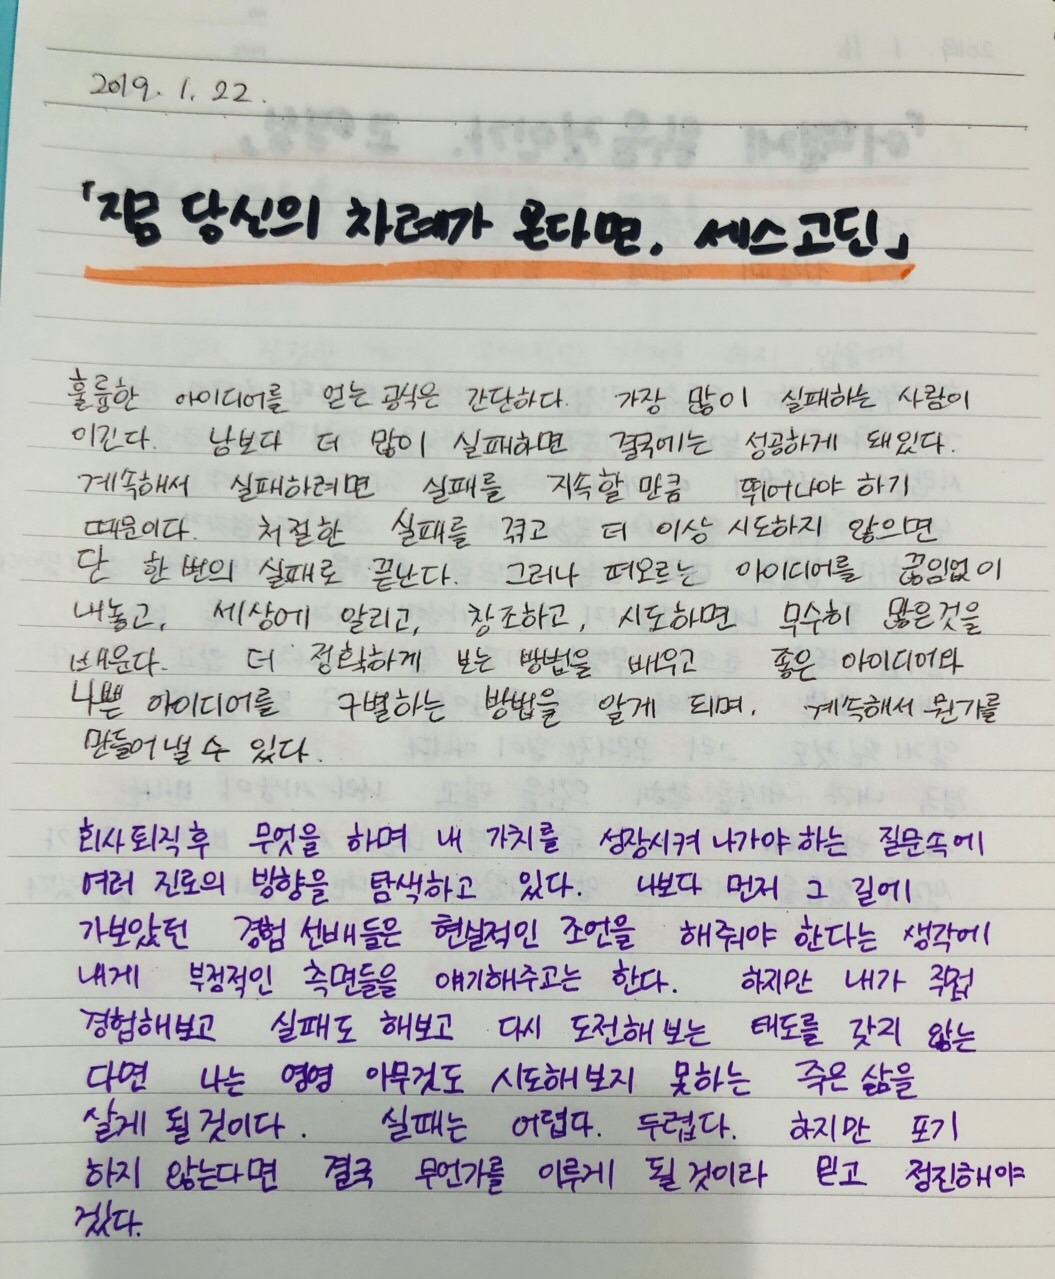 2019. 1. 22.
「지금 당신의 차례가 온다면, 세스고딘」
훌륭한 아이디어를 얻는 공식은 간단하다. 가장 많이 실패하는 사람이
이긴다. 남보다 더 많이 실패하면 결국에는 성공하게 돼있다.
계속해서 실패하려면 실패를 지속할 만큼 뛰어나야 하기
때문이다. 처절한 실패를 겪고 더 이상 시도하지 않으면
단 한번의 실패로 끝난다. 그러나 떠오르는 아이디어를 끊임없이
내놓고, 세상에 알리고, 창조하고, 시도하면 무수히 많은것을
배운다. 더 정확하게 보는 방법을 배우고 좋은 아이디어와
나쁜 아이디어를 구별하는 방법을 알게 되며, 계속해서 뭔가를
만들어 낼 수 있다.
회사 퇴직 후 무엇을 하며 내 가치를 성장시켜 나가야 하는 질문속에
여러 진로의 방향을 탐색하고 있다. 나보다 먼저 그 길에
가보았던 경험 선배들은 현실적인 조언을 해줘야 한다는 생각에
내게 부정적인 측면들을 얘기해주고는 한다. 하지만 내가 직접
경험해보고 실패도 해보고 다시 도전해 보는 태도를 갖지 않는
다면 나는 영영 아무것도 시도해 보지 못하는 죽은 삶을
살게 될 것이다. 실패는 어렵다. 두렵다. 하지만 포기
하지 않는다면 결국 무언가를 이루게 될 것이라 믿고 정진해야
겠다.